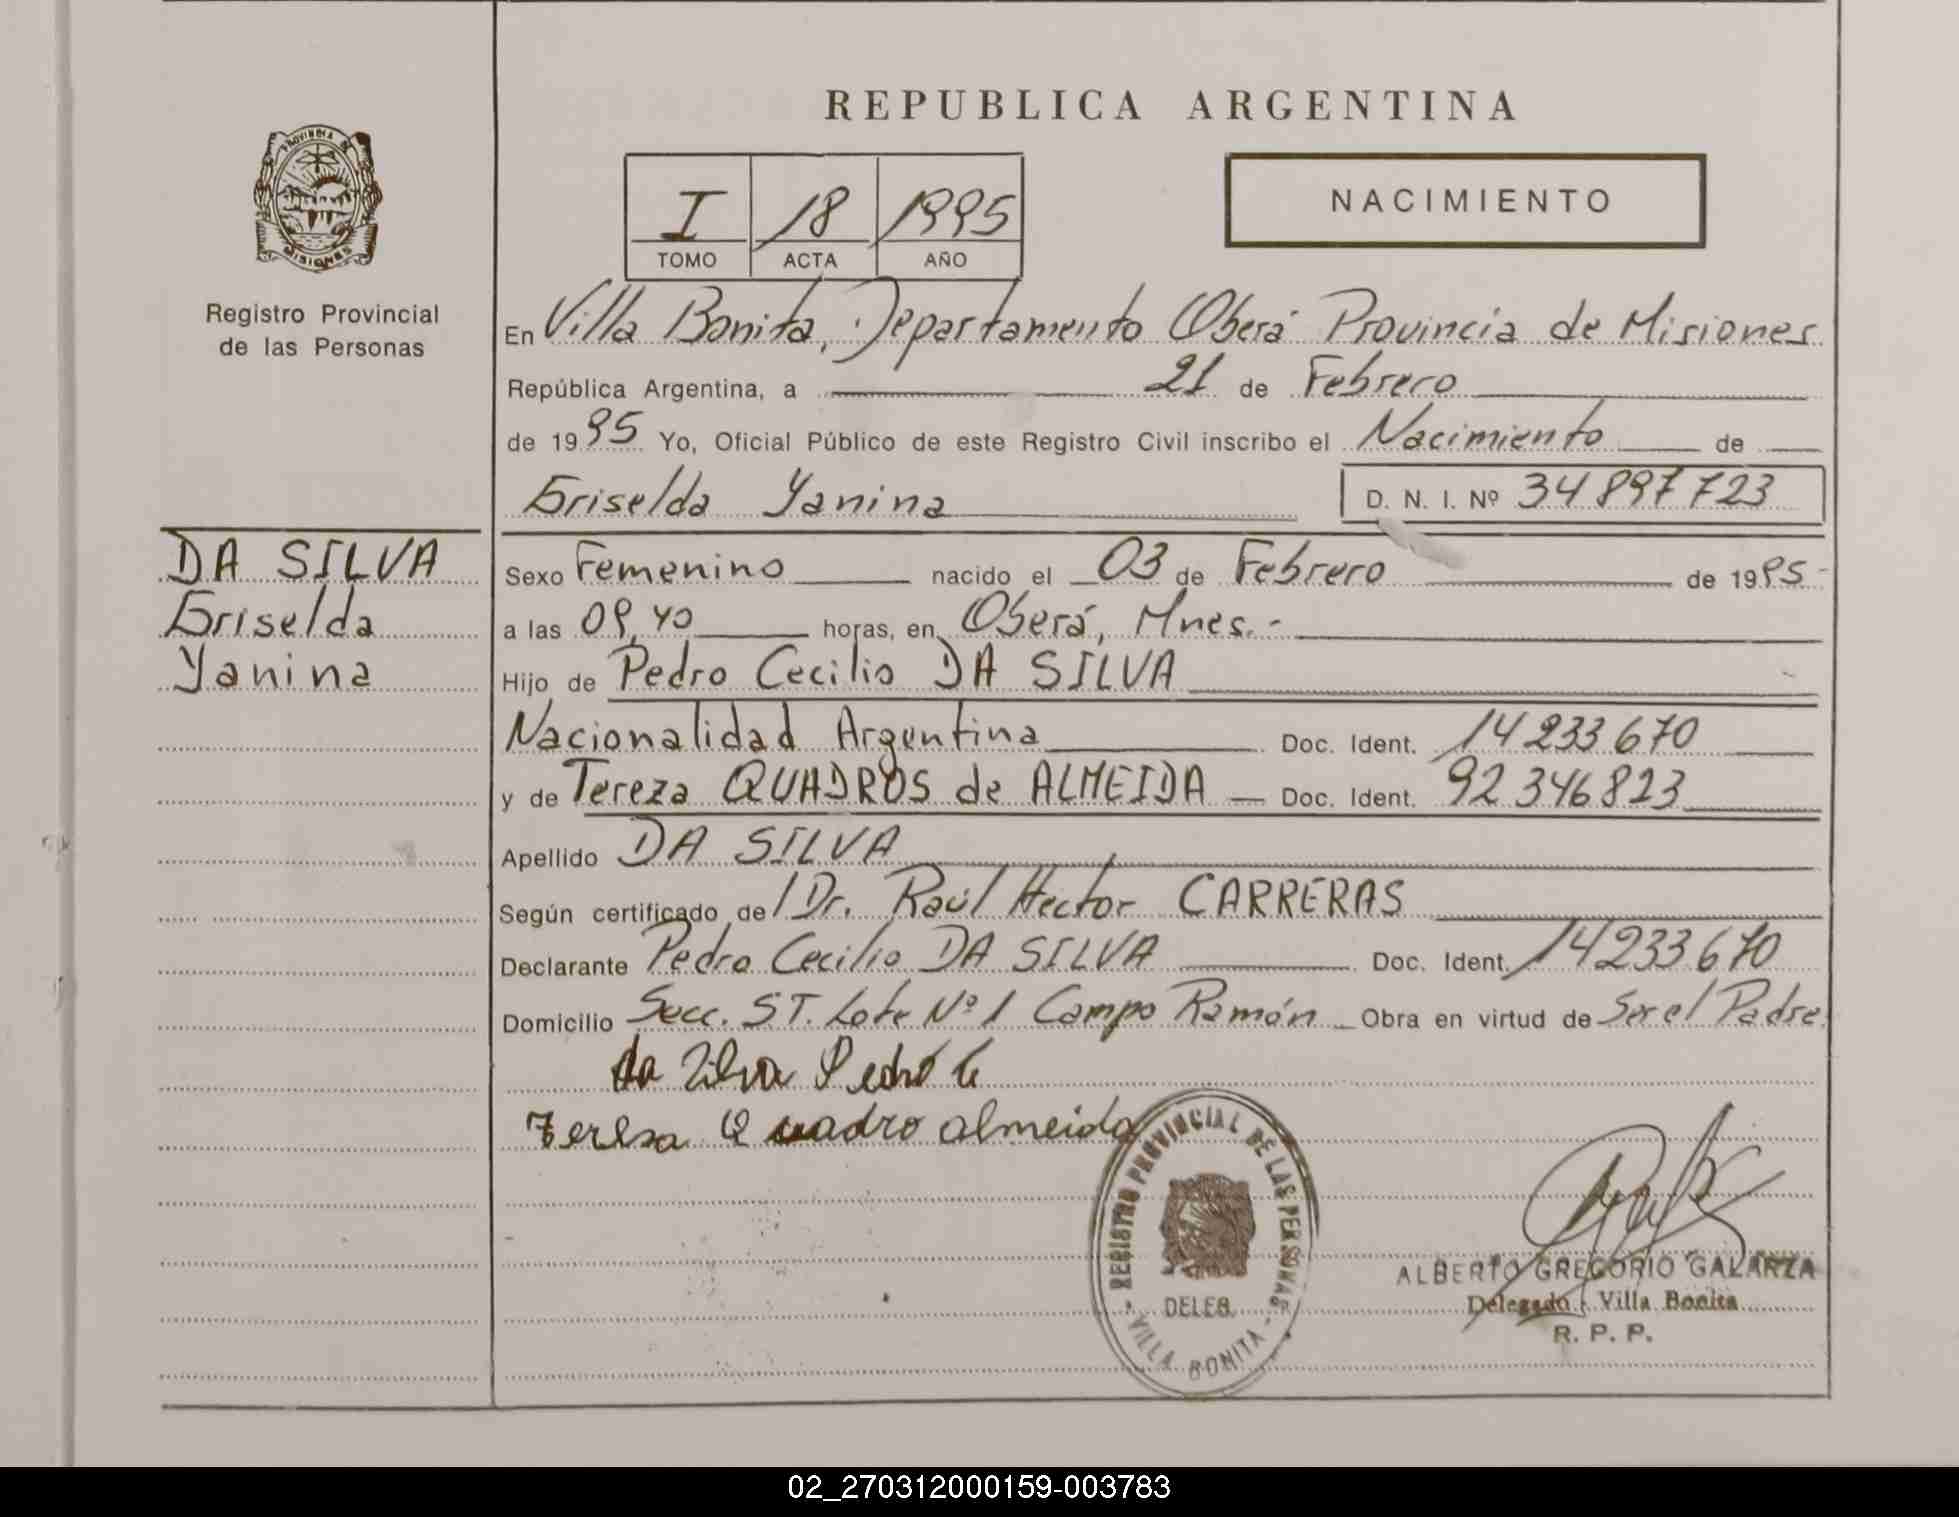 REPUBLICA ARGENTINA
PROVINCIA DE
MISIONES
Registro Provincial
de las Personas
I 18 1995
TOMO ACTA AÑO
NACIMIENTO
En Villa Bonita, Departamento Oberá Provincia de Misiones
República Argentina, a 21 de Febrero
de 1995 Yo, Oficial Público de este Registro Civil inscribo el Nacimiento de
Griselda Yanina D. N. I. Nº 34897723
DA SILVA
Griselda
Yanina
Sexo Femenino nacido el 03 de Febrero de 1995-
a las 09,40 horas, en Oberá, Mnes.-
Hijo de Pedro Cecilio DA SILVA
Nacionalidad Argentina Doc. Ident. 14233670
y de Tereza QUADROS de ALMEIDA Doc. Ident. 92346823
Apellido DA SILVA
Según certificado del Dr. Raúl Hector CARRERAS
Declarante Pedro Cecilio DA SILVA Doc. Ident. 14233670
Domicilio Secc. ST. Lote Nº 1 Campo Ramón Obra en virtud de Ser el Padre.
da Silva Pedro C
Teresa Quadro almeida
REGISTRO PROVINCIAL DE LAS PERSONAS
DELEG.
VILLA BONITA
ALBERTO GREGORIO GALARZA
Delegado Villa Bonita
R. P. P.
02_270312000159-003783